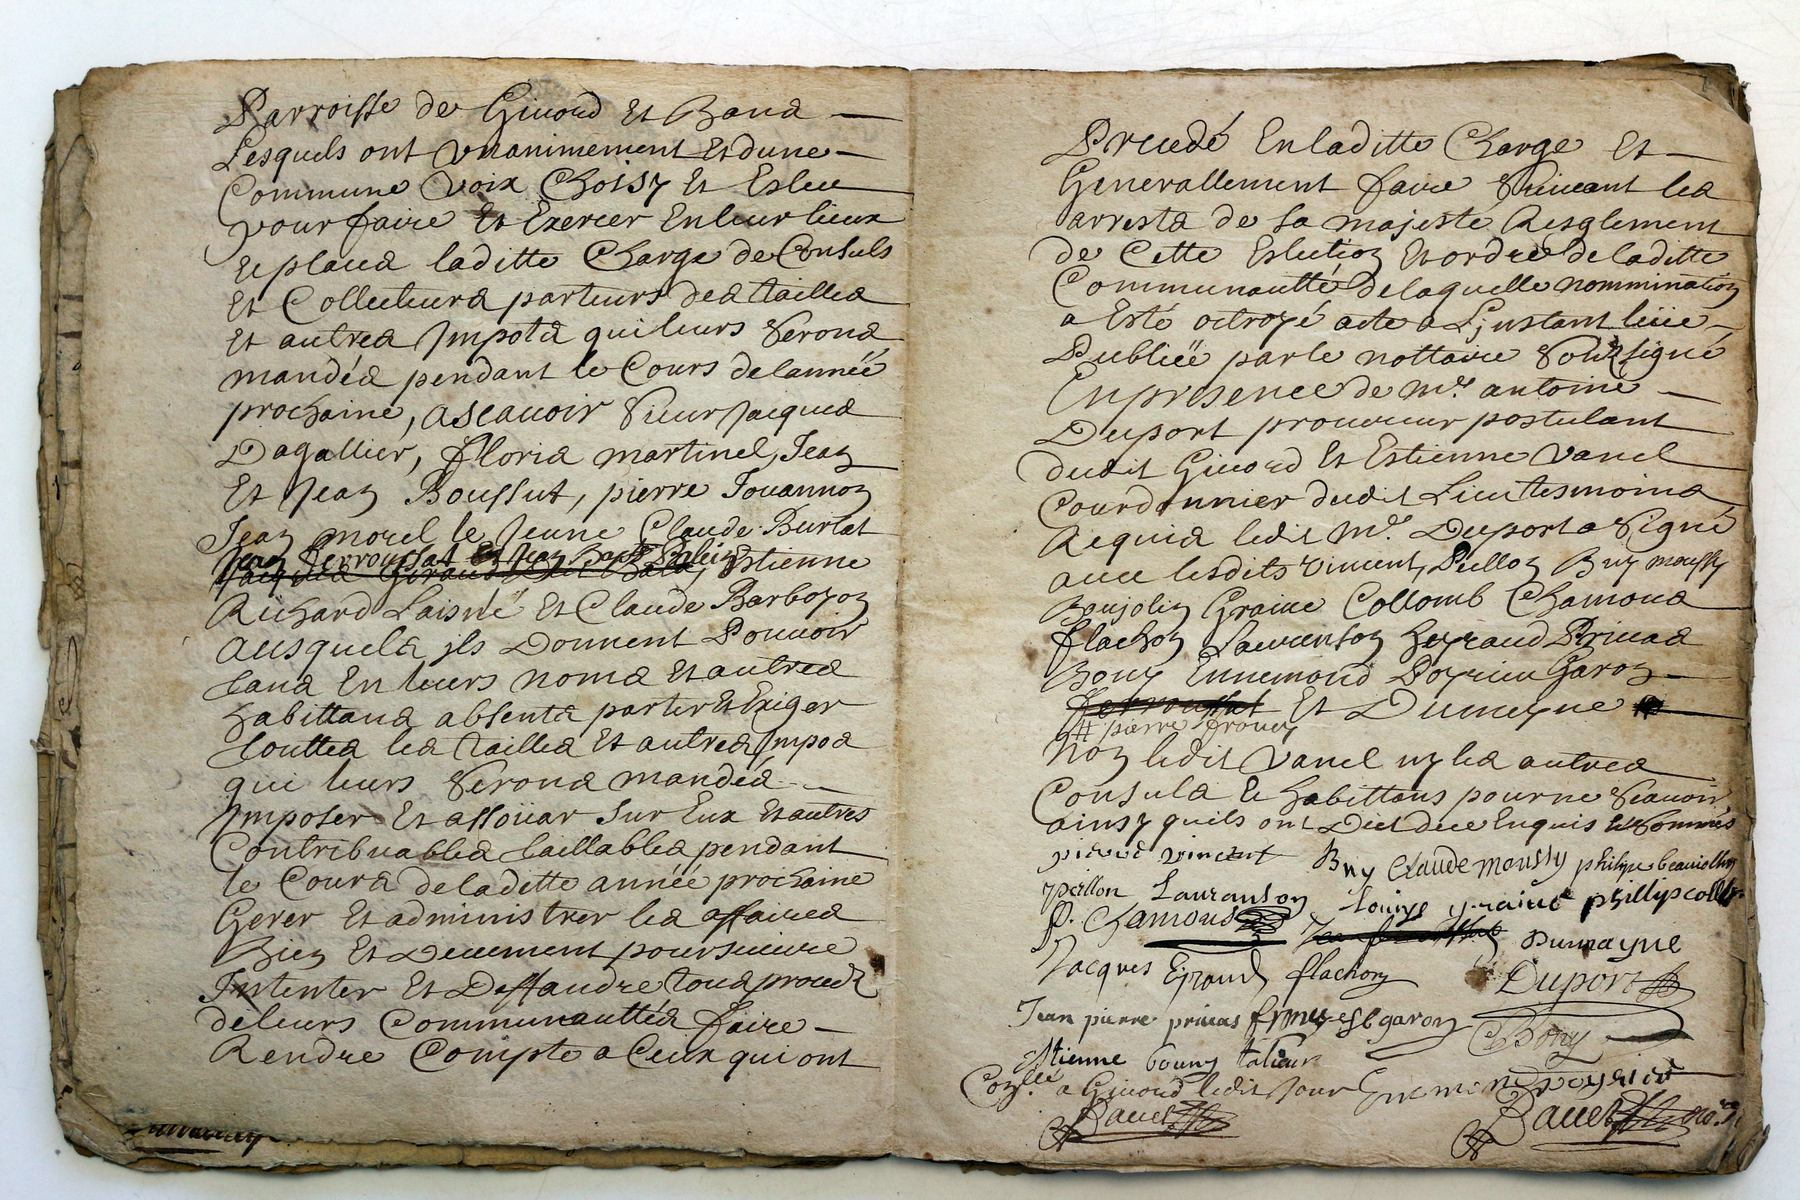 Parroisse de Giuord Et Bans
Lesquels ont vnanimement Et dune
Commune voix Choisy Et Esleu
pour faire Et Exercer En leur lieux
Et places laditte Charge de Consuls
Et Collecteurs parteurs des tailles
Et autres Impots qui leurs Seront
mandés pendant le Cours de lanneë
prochaine, ascauoir Sieur Jacques
Dagallier, floris martinel, Jean
Et Jean Boussut, pierre Jouannon
Jean morel le Jeune Claude Burlat
Jean
Jacques Giraud Estienne
Richard Laisné Et Claude Barboyon
Ausquels jls Donnent Pouuoir
tans En leurs noms Et autres
habittans absents partir Et Exiger
touttes les tailles Et autres Impos
qui leurs Seront mandés
Imposer Et assoüar sur Eux Et autres
Contribuables taillables pendant
le Cours deladette année prochaine
Gerer Et administrer les affaires
Bien Et Deuement poursuiure
Intenter Et Deffandre tous proced
deleurs Communauttés faire
Rendre Compte a Ceux qui ont
Precedé En laditte Charge Et
Generallement faire Suiuant les
arrests de sa majesté Resglement
de Cette Eslection Et ordre de laditte
Communautté de laquelle nommination
a Esté octroyé acte a Linstant leüe
Publieë par le nottaire Soubsigné
En presence de mre. antoine
Duport procureur postulant
dudit Giuord Et Estienne vanel
Courdonnier dudit Lieu tesmoins
Requis ledit Mre. Duport a Signé
auec lesdits vincent, Peillon Buy moussy
Boujolin Graiue Collomb Chamous
flachon Lauranson Geyraud Priuas
Bony Ennemond Doyrieu Garon
Et Dumayne
# pierre
Non ledit vanel ny les autres
Consuls Et habittans pour ne Scauoir
ainsy quils ont Dict de ce Enquis Et Sommés
pierre vincent Buy Claude moussy philipe
peillon Lauranson Louiys graiue phillip
P. Chamous Dumayne
Jacques Giraud flachon Duport
Jean pierre priuas garon Bony
Estienne bouny
a Giuord ledit Jour
Bauet Bauet